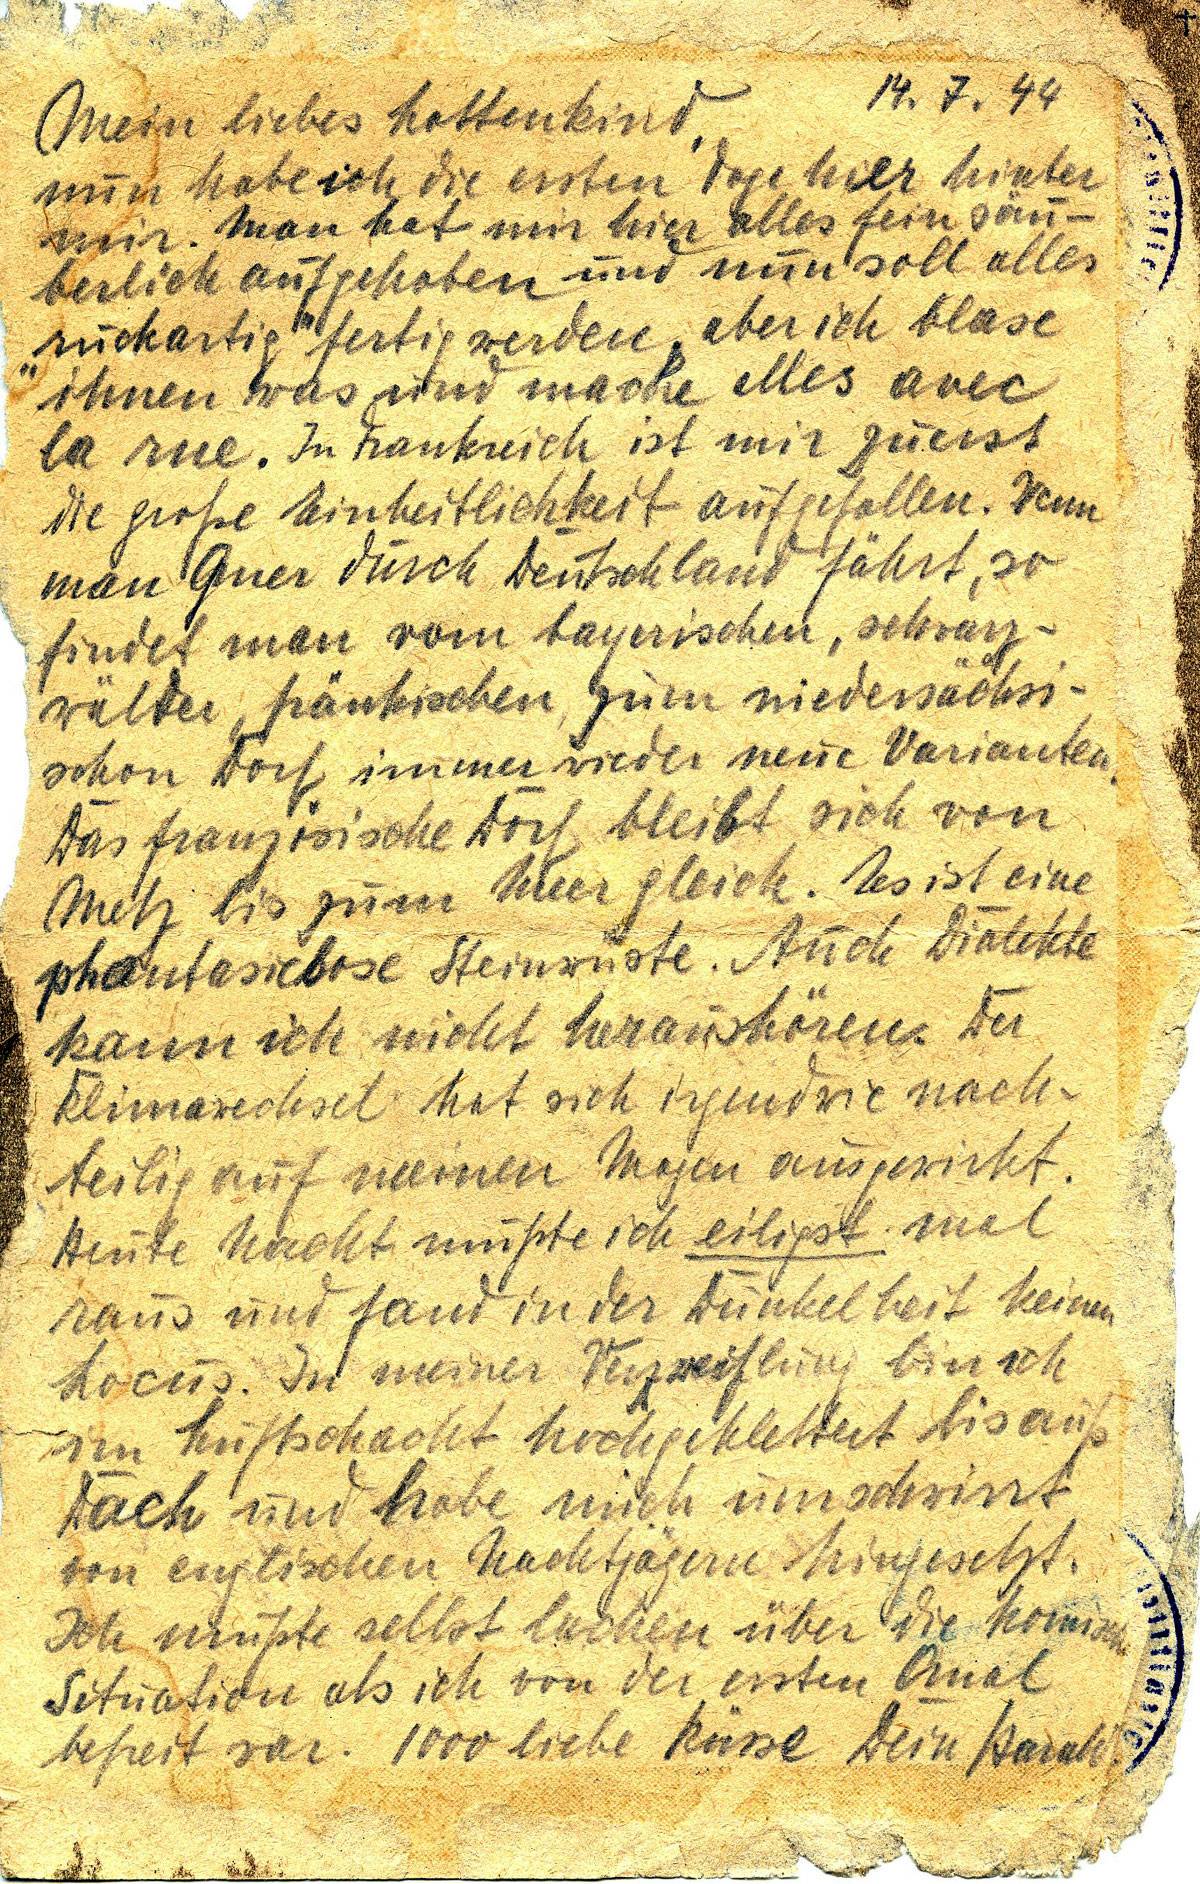 14. 7. 44
Mein liebes Lottenkind,
nun habe ich die ersten Tage hier hinter
mir. Man hat mir hier alles fein säu-
berlich aufgehoben und nun soll alles
"ruckartig" fertig werden, aber ich blase
ihnen was und mache alles avec
la rue. In Frankreich ist mir zuerst
die große Einheitlichkeit aufgefallen. Wenn
man Quer durch Deutschland fährt, so
findet man vom bayerischen, schwarz-
wälder, fränkischen, zum niedersächsi-
schon Dorf immer wieder neue Varianten.
Das französische Dorf bleibt sich von
Metz bis zum Meer gleich. Es ist eine
phantasielose Steinwüste. Auch Dialekte
kann ich nicht heraushören. Der
Klimawechsel hat sich irgendwie nach-
teilig auf meinen Magen ausgewirkt.
Heute Nacht mußte ich eiligst mal
raus und fand in der Dunkelheit keinen
Locus. In meiner Verzweiflung bin ich
im Luftschacht hochgeklettert bis aufs
Dach und habe mich umschwirrt
von englischen Nachtjägern hingesetzt.
Ich mußte selbst lachen über die komische
Situation als ich von der ersten Qual
befreit war. 1000 liebe Küsse Dein